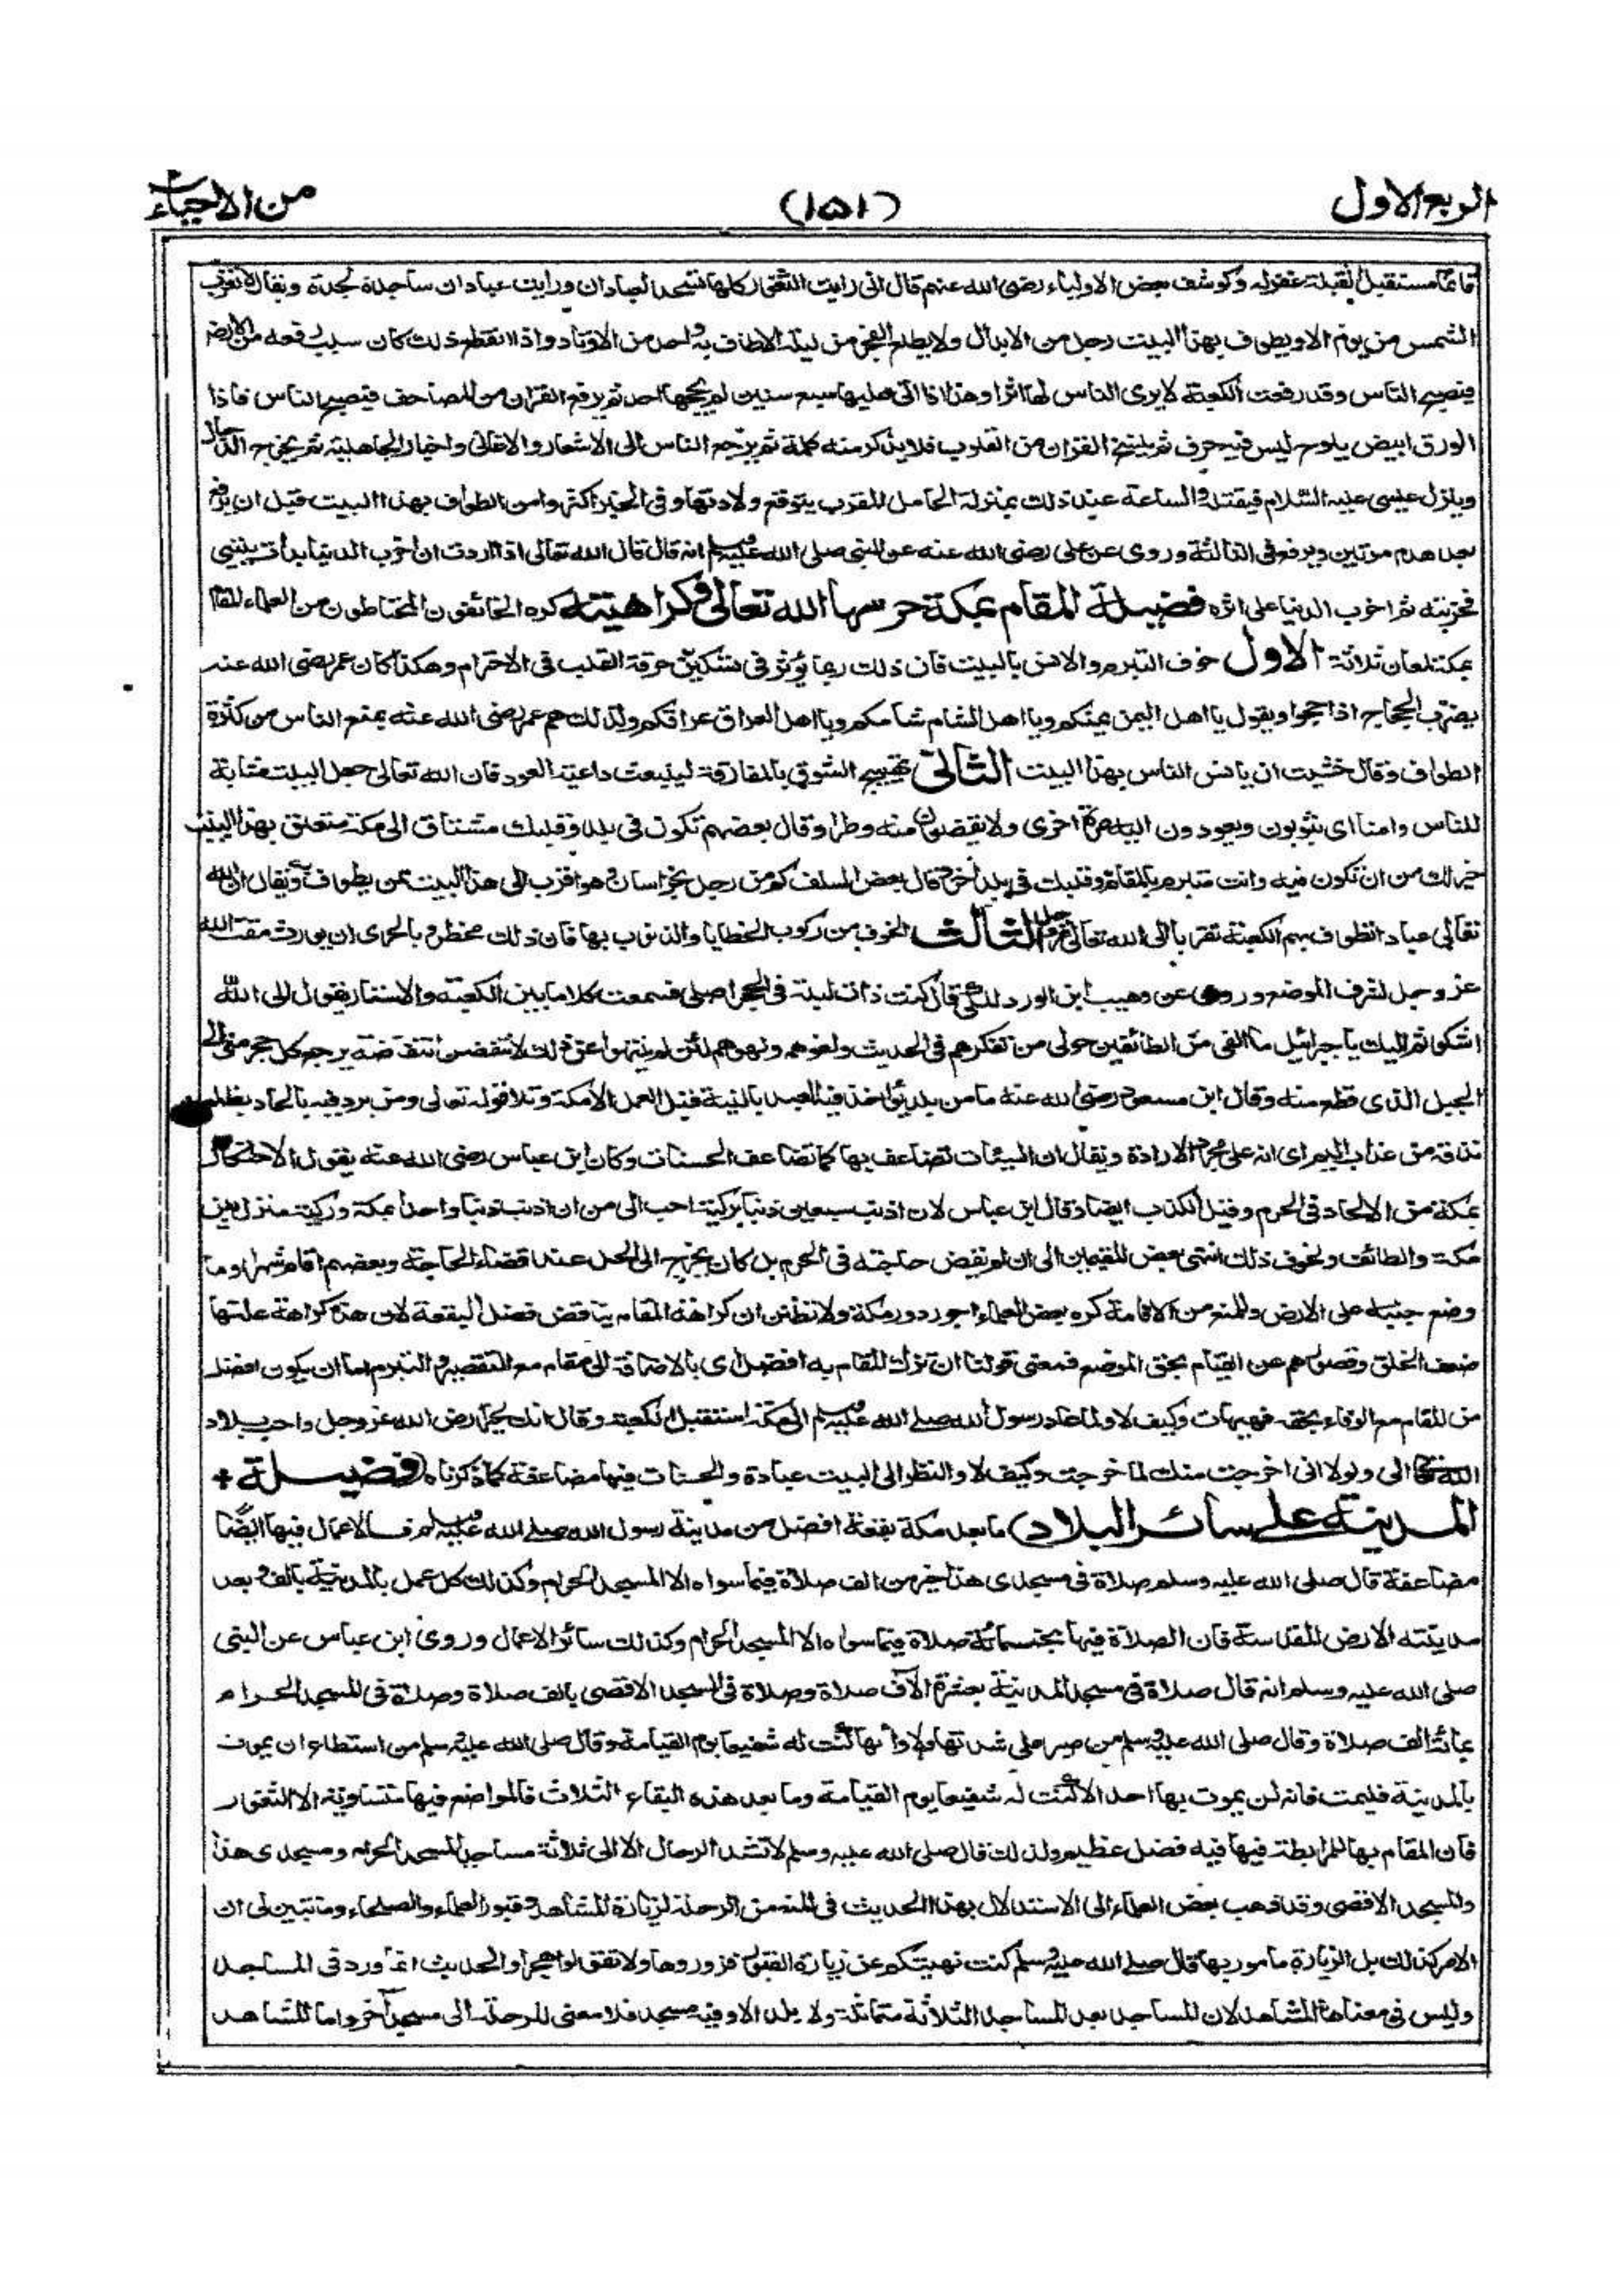 الربع الاول
(١٥١)
من الاحياء
قائما مستقبل القبلة غفر له وكوشف بعض الاولياء رضى الله عنهم قال انى رايت الثغور كلها تسجد لعبادان ورايت عبادان ساجدة لجدة ويقال لا تغرب
الشمس من يوم الا ويطوف بهذا البيت رجل من الابدال ولا يطلع الفجر من ليلة الا طاف به واحد من الاوتاد واذا انقطع ذلك كان سبب رفعه من الارض
فيصبح الناس وقد رفعت الكعبة لا يرى الناس لها اثرا وهذا اذا اتى عليها سبع سنين لم يحجها احد ثم يرفع القران من المصاحف فيصبح الناس فاذا
الورق ابيض يلوح ليس فيه حرف ثم ينسخ القران من القلوب فلا يذكر منه كلمة ثم يرجع الناس الى الاشعار والاغانى واخبار الجاهلية ثم يخرج الدجال
وينزل عيسى عليه السلام فيقتله والساعة عند ذلك بمنزلة الحامل المقرب يتوقع ولادتها وفى الخبر اكثروا من الطواف بهذا البيت قبل ان يرفع
فقد هدم مرتين ويرفع فى الثالثة وروى عن على رضى الله عنه عن النبى صلى الله عليه وسلم انه قال قال الله تعالى اذا اردت ان اخرب الدنيا بدأت ببيتى
فخربته ثم اخرب الدنيا على اثره فضيلة المقام بمكة حرسها الله تعالى وكراهيته كره الخائفون المحتاطون من العلماء المقام
بمكة لمعان ثلاثة الاول خوف التبرم والانس بالبيت فان ذلك ربما يؤثر فى تسكين حرقة القلب فى الاحترام وهكذا كان عمر رضى الله عنه
يضرب الحجاج اذا حجوا ويقول يا اهل اليمن يمنكم ويا اهل الشام شامكم ويا اهل العراق عراقكم ولذلك هم عمر رضى الله عنه بمنع الناس من كثرة
الطواف وقال خشيت ان يانس الناس بهذا البيت الثانى تهييج الشوق بالمفارقة لينبعث داعية العود فان الله تعالى جعل البيت مثابة
للناس وامنا اى يثوبون ويعودون اليه مرة اخرى ولا يقضون منه وطرا وقال بعضهم تكون فى بلد وقلبك مشتاق الى مكة متعلق بهذا البيت
خير لك من ان تكون فيه وانت متبرم بالمقام وقلبك فى بلد اخر وقال بعض السلف كم من رجل بخراسان وهو اقرب الى هذا البيت ممن يطوف به ويقال ان لله
تعالى عبادا تطوف بهم الكعبة تقربا الى الله تعالى عز وجل الثالث الخوف من ركوب الخطايا والذنوب بها فان ذلك مخطر وبالحرى ان يورث مقت الله
عز وجل لشرف الموضع وروى عن وهيب ابن الورد المكى قال كنت ذات ليلة فى الحجر اصلى فسمعت كلاما بين الكعبة والاستار يقول الى الله
اشكوا ثم اليك يا جبرائيل ما القى من الطائفين حولى من تفكرهم فى الحديث ولغوهم ولهوهم لئن لم ينتهوا عن ذلك لانتفضن انتفاضة يرجع كل حجر منى الى
الجبل الذى قطع منه وقال ابن مسعود رضى الله عنه ما من بلد يؤاخذ فيه العبد بالنية قبل العمل الا مكة وتلا قوله تعالى ومن يرد فيه بالحاد بظلم
نذقه من عذاب اليم اى انه على مجرد الارادة ويقال ان السيئات تضاعف بها كما تضاعف الحسنات وكان ابن عباس رضى الله عنه يقول الاحتكار
بمكة من الالحاد فى الحرم وقيل الكذب ايضا وقال ابن عباس لان اذنب سبعين ذنبا بركية احب الى من ان اذنب ذنبا واحدا بمكة وركية منزل بين
مكة والطائف ولخوف ذلك انتهى بعض المقيمين الى ان لم يقض حاجته فى الحرم بل كان يخرج الى الحل عند قضاء الحاجة وبعضهم اقام شهرا وما
وضع جنبه على الارض وللمنع من الاقامة كره بعض العلماء اجور دور مكة ولا تظنن ان كراهة المقام يناقض فضل البقعة لان هذه كراهة علتها
ضعف الخلق وقصورهم عن القيام بحق الموضع فمعنى قولنا ان ترك المقام به افضل اى بالاضافة الى مقام مع التقصير والتبرم اما ان يكون افضل
من المقام مع الوفاء بحقه فهيهات وكيف لا ولما عاد رسول الله صلى الله عليه وسلم الى مكة استقبل الكعبة وقال انك لخير ارض الله عز وجل واحب بلاد
الله تعالى الى ولولا انى اخرجت منك لما خرجت وكيف لا والنظر الى البيت عبادة والحسنات فيها مضاعفة كما ذكرناه (فضيلة +
المدينة على سائر البلاد) ما بعد مكة بقعة افضل من مدينة رسول الله صلى الله عليه وسلم فالاعمال فيها ايضا
مضاعفة قال صلى الله عليه وسلم صلاة فى مسجدى هذا خير من الف صلاة فيما سواه الا المسجد الحرام وكذلك كل عمل بالمدينة بالف وبعد
مدينته الارض المقدسة فان الصلاة فيها بخمسمائة صلاة فيما سواه الا المسجد الحرام وكذلك سائر الاعمال وروى ابن عباس عن النبى
صلى الله عليه وسلم انه قال صلاة فى مسجد المدينة بعشرة الاف صلاة وصلاة فى المسجد الاقصى بالف صلاة وصلاة فى المسجد الحرام
بمائة الف صلاة وقال صلى الله عليه وسلم من صبر على شدتها ولاوائها كنت له شفيعا يوم القيامة وقال صلى الله عليه وسلم من استطاع ان يموت
بالمدينة فليمت فانه لن يموت بها احد الا كنت له شفيعا يوم القيامة وما بعد هذه البقاع الثلاث فالمواضع فيها متساوية الا الثغور
فان المقام بها للمرابطة فيها فيه فضل عظيم ولذلك قال صلى الله عليه وسلم لا تشد الرحال الا الى ثلاثة مساجد المسجد الحرام ومسجدى هذا
والمسجد الاقصى وقد ذهب بعض العلماء الى الاستدلال بهذا الحديث فى المنع من الرحلة لزيارة المشاهد وقبور العلماء والصلحاء وما تبين لى ان
الامر كذلك بل الزيارة مامور بها قال صلى الله عليه وسلم كنت نهيتكم عن زيارة القبور فزوروها ولا تقولوا هجرا والحديث انما ورد فى المساجد
وليس فى معناها المشاهد لان المساجد بعد المساجد الثلاثة متماثلة ولا بلد الا وفيه مسجد فلا معنى للرحلة الى مسجد آخر واما المشاهد